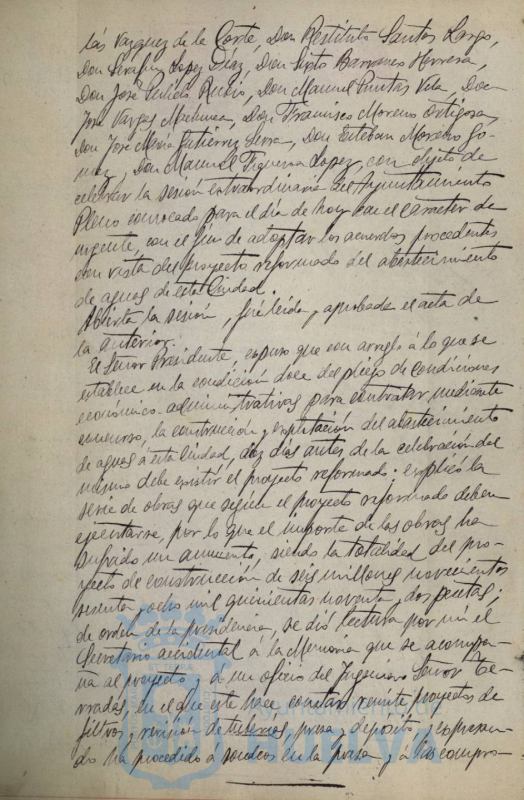 lás Vazquez de la Corte, Don Restituto Santos Largo,
Don Serafin Lopez Díaz, Don Sixto Barranes Herrera,
Don José Pulido Rubio, Don Manuel Puntas Vela, Don
José Vargas Don Francisco Moreno Ortigosa,
Don José María Gutierrez Serra, Don Esteban Moreno Go-
mez, Don Manuel Figueroa Lopez, con objeto de
celebrar la sesión extraordinaria del Ayuntamiento
Pleno convocado para el día de hoy con el caracter de
urgente, con el fin de adoptar los acuerdos procedentes
con vista del proyecto reformado del abastecimiento
de aguas de esta Ciudad.
Abierta la sesión, fué leida y aprobada el acta de
la anterior.
El Señor Presidente, expuso que con arreglo á lo que se
establece en la condición doce del pliego de condiciones
económico-administrativas para contratar mediante
concurso, la construccion y explotación del abastecimiento
de aguas á esta Ciudad, diez días antes de la celebración del
mismo debe existir el proyecto reformado; explicó la
serie de obras que según el proyecto reformado deben
ejecutarse, por lo que el importe de las obras ha
sufrido un aumento, siendo la totalidad del pro-
yecto de construcción de seis millones novecientos
sesenta y ocho mil quinientas noventa y dos pesetas;
de orden de la presidencia, se dió lectura por mí el
Secretario accidental á la Memoria que se acompa-
ña al proyecto y a un oficio del Ingeniero Señor Te-
rradas, en el que este hace constar remite proyectos de
filtros y revisión de tuberías, presa y deposito, y expresan-
do ha procedido á sondeos en la presa y á las compro-